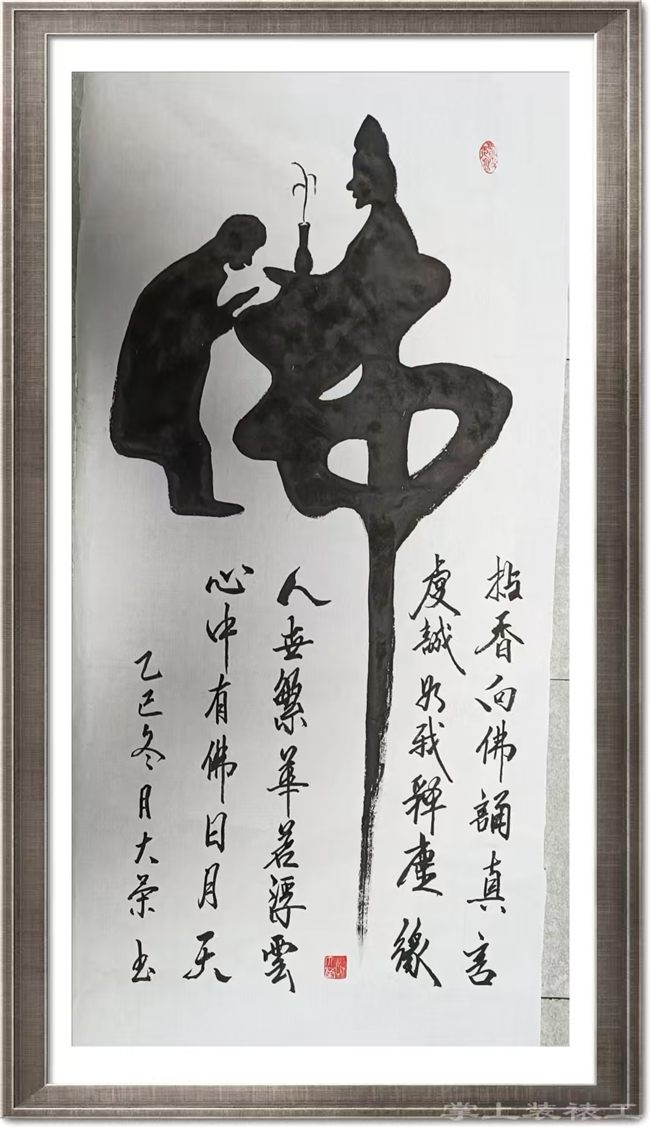 佛
拈香向佛誦真言
虔誠如我釋塵緣
人世繁華若浮雲
心中有佛日月天
乙巳冬月大榮书
掌上装裱工